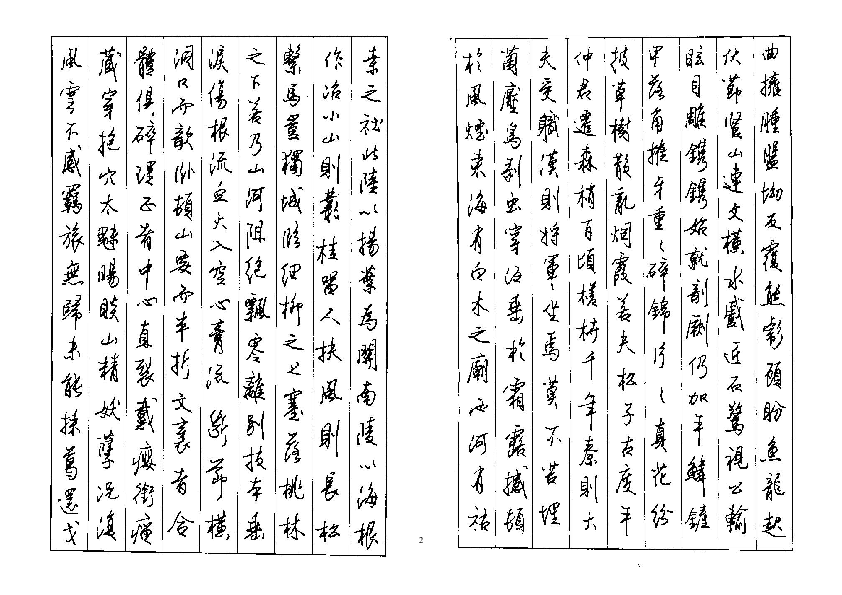 曲擁腫盤坳反覆熊彪頋盼魚龍起
伏節竪山連文横水蹙近石驚視公輸
眩目雕鐫鐫始就剞劂仍加平鱗鏟
甲落角摧牙重々碎錦片々真花紛
披草樹散亂烟霞若夫松子古度平
仲君遷森梢百頃槎枿千年秦則大
夫受職漢則將軍坐焉莫不苔埋
菌壓鳥剥虫穿低垂於霜露撼頓
於風煙東海有白木之廟西河有枯
桑之社北陸以楊葉為關南陵以梅根
作冶小山則叢桂留人扶風則長松
繫馬豈獨城臨細柳之上塞落桃林
之下若乃山河阻絶飄零離别拔本垂
淚傷根流血火入空心膏流斷節橫
洞口而欹卧頓山要而半折文衺者合
體俱碎理正者中心直裂戴癭銜瘤
藏穿抱穴木魅睗睒山精妖孽况復
風雲不感羈旅無歸未能採葛還成
2